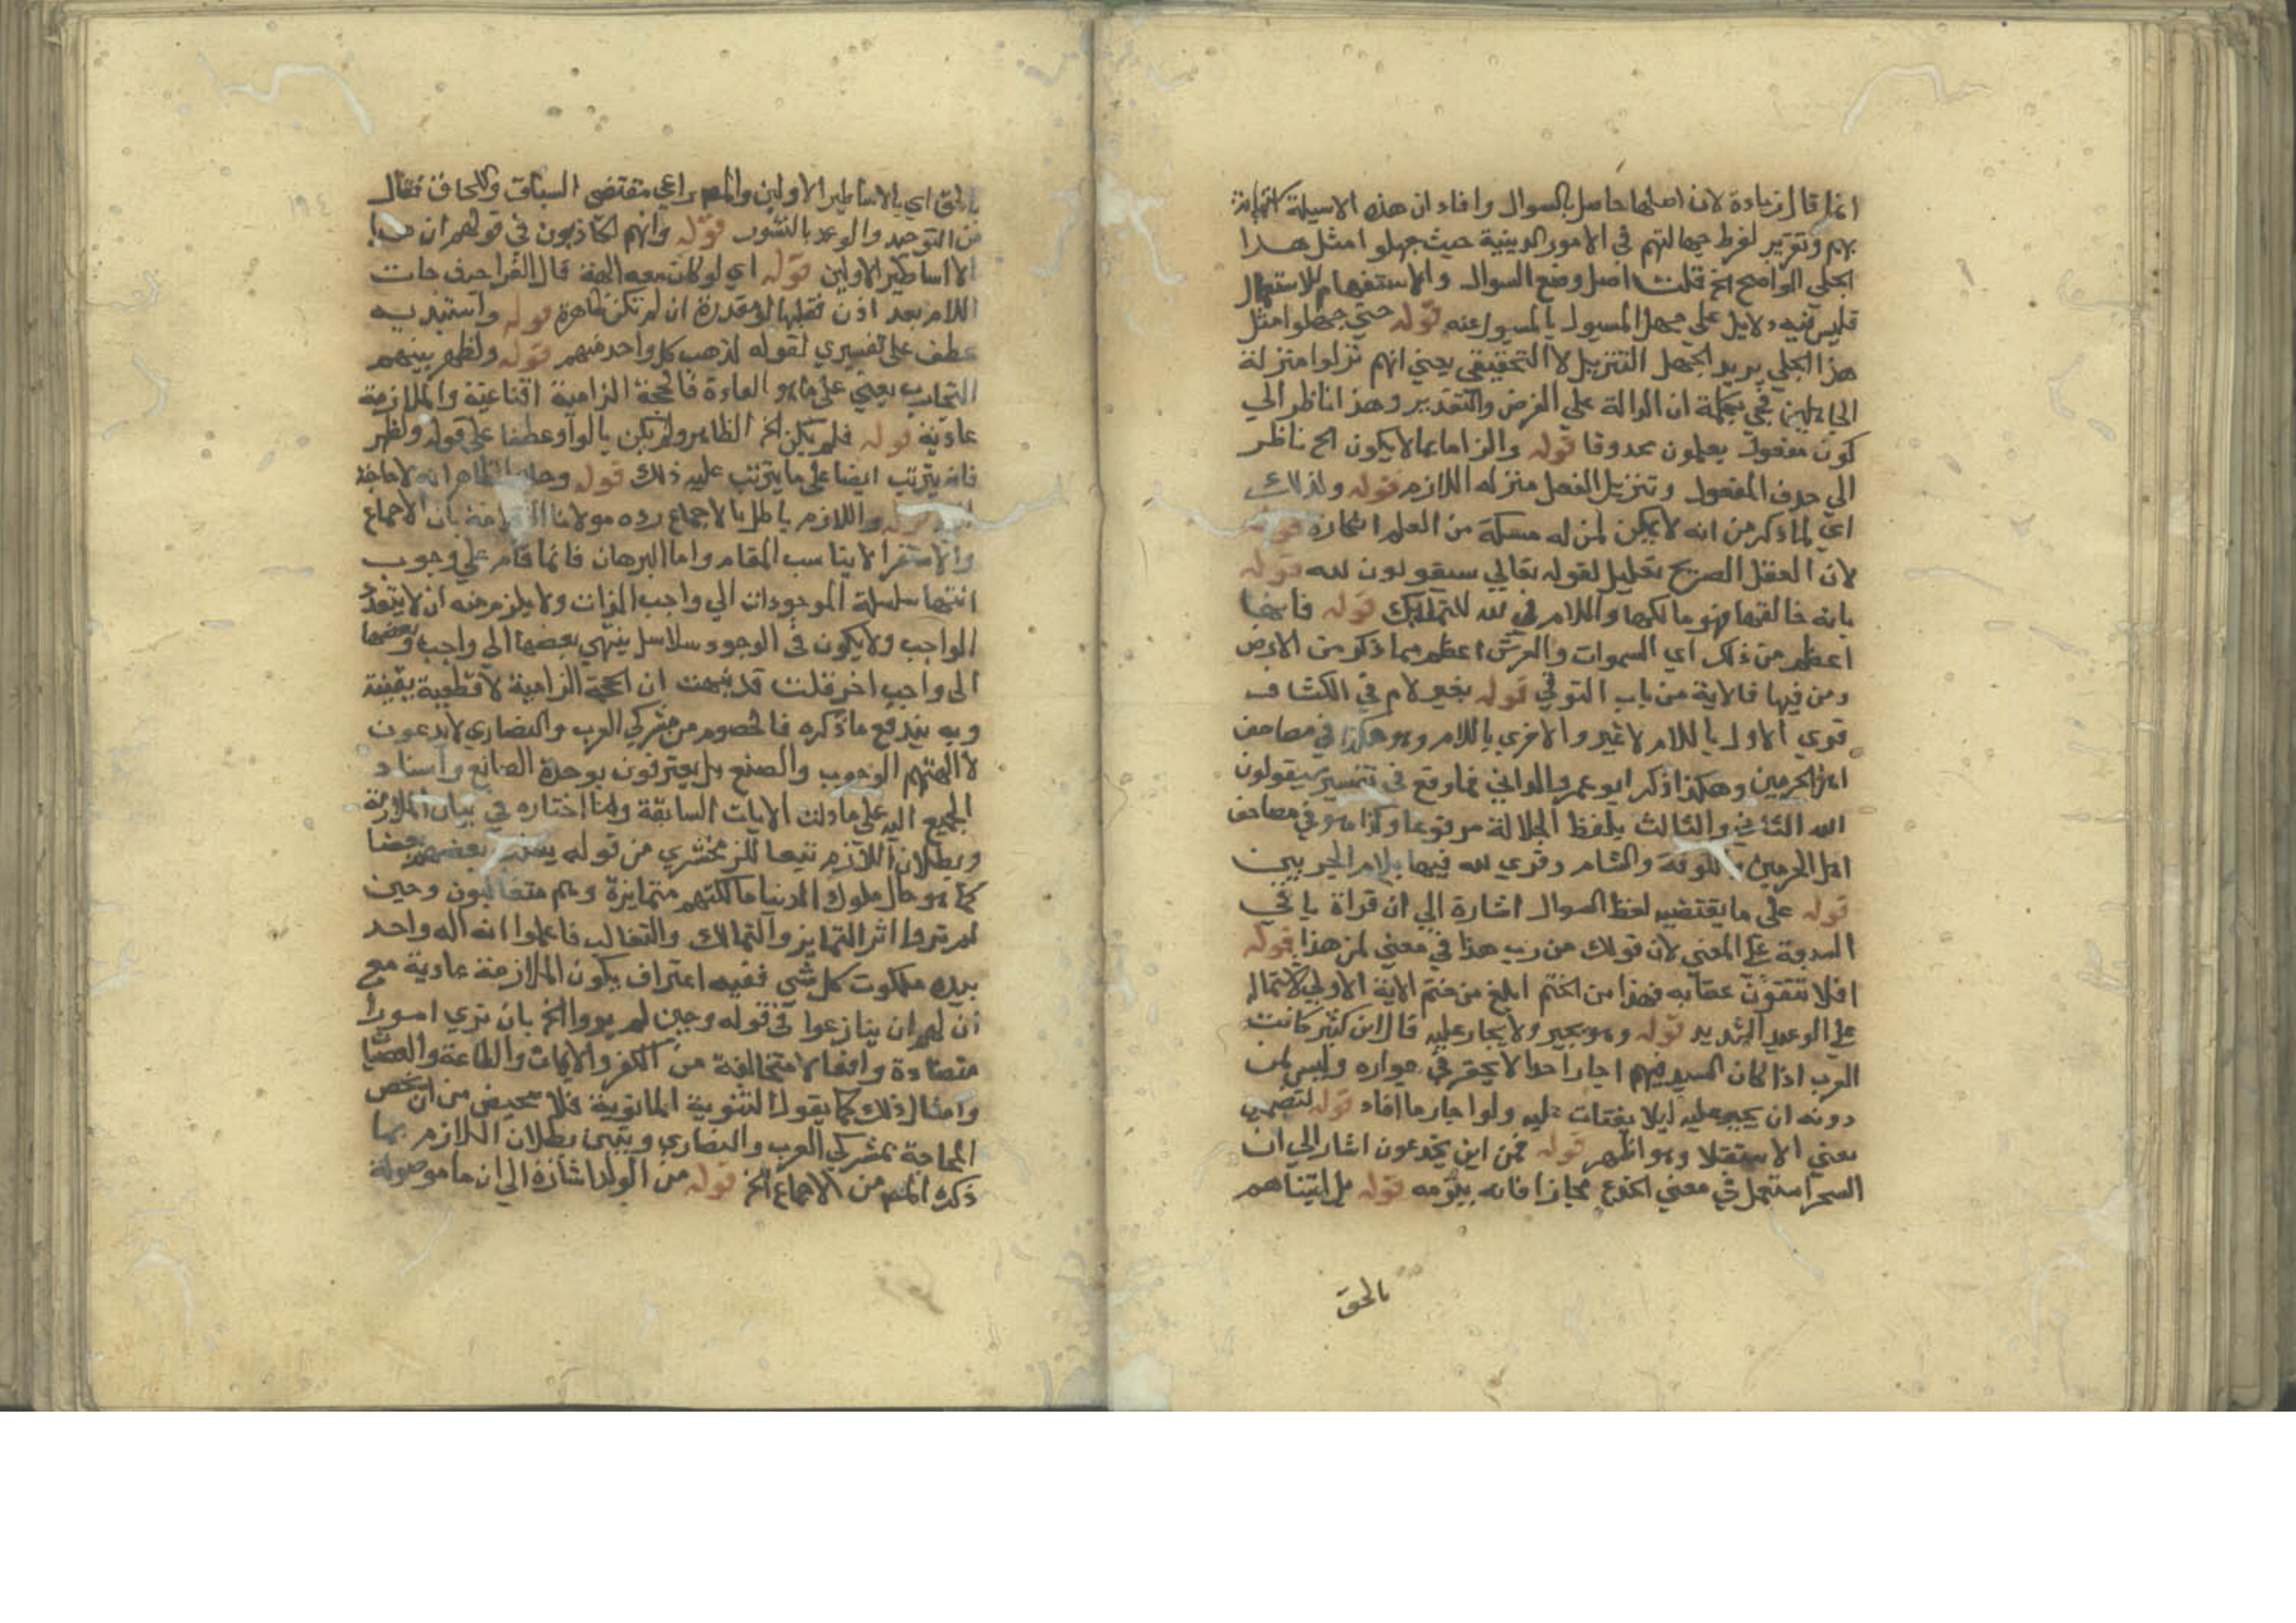 انما قال زيادة لان اصلها حاصل بالسوال وافاد ان هذه الاسيلة استهانة
بهم وتقرير لفرط جهالتهم في الامور الدينية حيث جهلوا مثل هذا
الجلي الواضح الخ قلت اصل وضع السوال والاستفهام للاستعمال
فليس فيه دلايل علي جهل المسيول بالمسيول عنه قوله حتي جهلوا مثل
هذا الجلي يريد الجهل التنزيلي لا التحقيقي يعني انهم نزلوا منزلة
الجاهلين في كلمة ان الدالة علي الفرض والتقدير وهذا ناظر الي
كون مفعول يعلمون محذوفا قوله والزاما بما لا يكون الخ ناظر
الي حذف المفعول وتنزيل الفعل منزله اللازم قوله ولذلك
اي لما ذكر من انه لا يمكن لمن له مسكة من العلم انكاره قوله
لان العقل الصريح تعليل لقوله تعالي سيقولون لله قوله
بانه خالقها فهو مالكها واللام في لله للتمليك قوله فانها
اعظم من ذلك اي السموات والعرش اعظم مما ذكر من الارض
ومن فيها فالاية من باب الترقي قوله بغير لام في الكشاف
قري الاول باللام لا غير والاخري باللام وهو هكذا في مصاحف
اهل الحرمين وهكذا ذكر ابو عمرو الداني فما وقع في تفسير سيقولون
الله الثاني والثالث بلفظ الجلالة مرفوعا وكذا هو في مصاحف
اهل الحرمين والكوفة والشام وقري لله فيها بلام الجر بين
قوله علي ما يقتضيه لفظ السوال اشارة الي ان قراة باقي
السبعة علي المعني لان قولك من رب هذا في معني لمن هذا قوله
افلا تتقون عقابه فهذا من الختم ابلغ من ختم الاية الاولي لاشتماله
علي الوعيد الشديد قوله وهو يجير ولا يجار عليه قال ابن كثير كانت
العرب اذا كان السيد فيهم اجار احدا لا يحقر في جواره وليس لمن
دونه ان يجير عليه ليلا يفتات عليه ولو اجار ما افاد قوله لتضمين
معني الاستعلا وهو اظهر قوله فمن اين تخدعون اشار الي ان
السحر استعمل في معني الخدع مجازا فانه بيومه قوله بل اتيناهم
بالحق
بالحق اي بالاساطير الاولين والمصراعي مقتضي السباق واللحاق فقال
من التوحيد والوعد بالنشور قوله وانهم لكاذبون في قولهم ان هذا
الا اساطير الاولين قوله اي لو كان معه الهة قال الفرا حيث جات
اللام بعد اذن فقبلها لو مقدرة ان لم تكن ظاهرة قوله واستبد به
عطف علي تفسيري لقوله لذهب كل واحد منهم قوله ولظهر بينهم
التحارب يعني علي ما هو العادة فالحجة الزامية اقناعية والملازمة
عادية قوله فلم يكن الخ الظاهر ولم يكن بالواو عطفا علي قوله ولظهر
فانه يترتب ايضا علي ما يترتب عليه ذلك قوله وحده الظاهر انه لا حاجة
اليه قوله واللازم باطل بالاجماع رده مولانا العلامة بان الاجماع
والاستقرا لا يناسب المقام واما البرهان فانما قام علي وجوب
انتها سلسلة الموجودات الي واجب الذات ولا يلزم منه ان لا يتعدد
الواجب ولا يكون في الوجود سلاسل ينتهي بعضها الي واجب وبعضها
الي واجب اخر قلت قد نبهت ان الحجة الزامية لا قطعية يقينة
وبه يندفع ما ذكره فالخصوم من مشركي العرب والنصاري لا يدعون
لالهتهم الوجوب والصنع بل يعترفون بوحدة الصانع واسناد
الجميع اليه علي ما دلت الايات السابقة ولما اختاره في بيان الملازمة
وبطلان اللازم تبعا للزمخشري من قوله بعضهم بعضا
كما هو حال ملوك الدنيا ممالكهم متمايزة وهم متغالبون وحين
لم تروا اثر التمايز والتمالك والتغالب فاعلموا انه اله واحد
بيده ملكوت كل شي ففيه اعتراف بكون الملازمة عادية مع
ان لهم ان ينازعوا في قوله وحين لم يروا الخ بان نري امورا
متضادة وافعالا متخالفة من الكفر والايمان والطاعة والعصيا
وامثال ذلك كما يقول الثنوية المانوية فلا محيض من ان نخص
المحاجة بمشركي العرب والنصاري ويتبين بطلان اللازم بما
ذكره المص من الاجماع الخ قوله من الولد اشارة الي ان ما موصولة